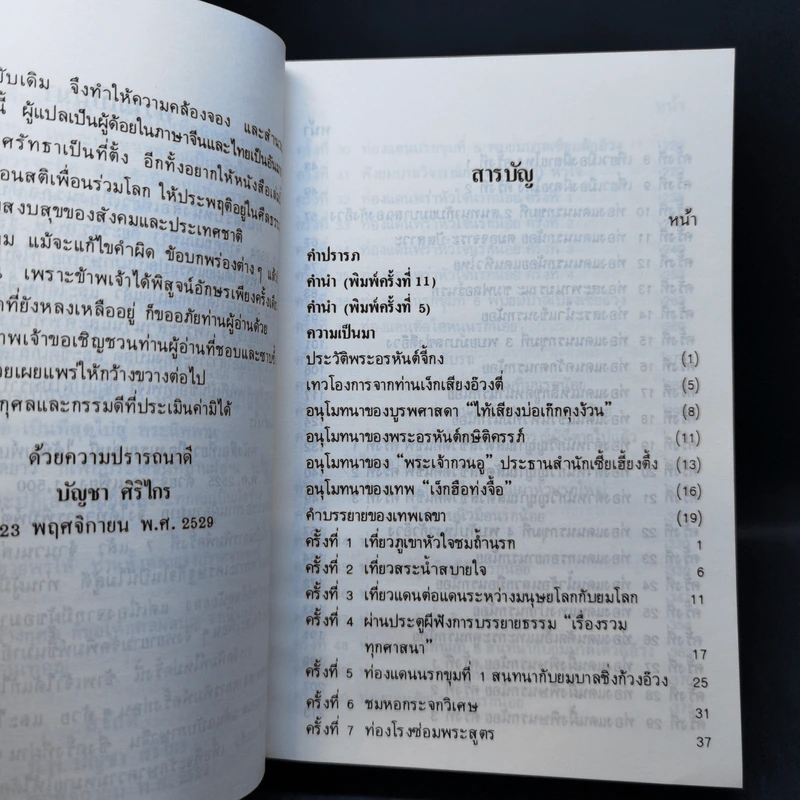 ับเดิม จึงทำให้ความคล้องจอง และสำนว
นี้ ผู้แปลเป็นผู้ด้อยในภาษาจีนและไทยเป็นอันม
ศรัทธาเป็นที่ตั้ง อีกทั้งอยากให้หนังสือเล่มนี้
อนสติเพื่อนร่วมโลก ให้ประพฤติอยู่ในศีลธรร
สงบสุขของสังคมและประเทศชาติ
ม แม้จะแก้ไขคำผิด ข้อบกพร่องต่างๆ แล้ว
เพราะข้าพเจ้าได้พิสูจน์อักษรเพียงครั้งเดียว
ที่ยังหลงเหลืออยู่ ก็ขออภัยท่านผู้อ่านด้วย
าพเจ้าขอเชิญชวนท่านผู้อ่านที่ชอบและซาบซึ้
วยเผยแพร่ให้กว้างขวางต่อไป
กุศลและกรรมดีที่ประเมินค่ามิได้
ด้วยความปรารถนาดี
บัญชา ศิริไกร
23 พฤศจิกายน พ.ศ. 2529
สารบัญ
หน้า
คำปรารภ
คำนำ (พิมพ์ครั้งที่ 11)
คำนำ (พิมพ์ครั้งที่ 5)
ความเป็นมา
ประวัติพระอรหันต์จี้กง (1)
เทวโองการจากท่านเง็กเสียงอ๊วงตี่ (5)
อนุโมทนาของบูรพศาสดา “ไท้เสียงบ่อเก๊กคุงง้วน” (8)
อนุโมทนาของพระอรหันต์กษิติครรภ์ (11)
อนุโมทนาของ “พระเจ้ากวนอู” ประธานสำนักเซี้ยเฮี้ยงตึ้ง (13)
อนุโมทนาของเทพ “เง็กฮือท่งจื้อ” (16)
คำบรรยายของเทพเลขา (19)
ครั้งที่ 1 เที่ยวภูเขาหัวใจชมถ้ำนรก 1
ครั้งที่ 2 เที่ยวสระน้ำสบายใจ 6
ครั้งที่ 3 เที่ยวแดนต่อแดนระหว่างมนุษยโลกกับยมโลก 11
ครั้งที่ 4 ผ่านประตูผีฟังการบรรยายธรรม “เรื่องรวม
ทุกศาสนา” 17
ครั้งที่ 5 ท่องแดนนรกขุมที่ 1 สนทนากับยมบาลชิ่งก้วงอ๊วง 25
ครั้งที่ 6 ชมหอกระจกวิเศษ 31
ครั้งที่ 7 ท่องโรงซ่อมพระสูตร 37